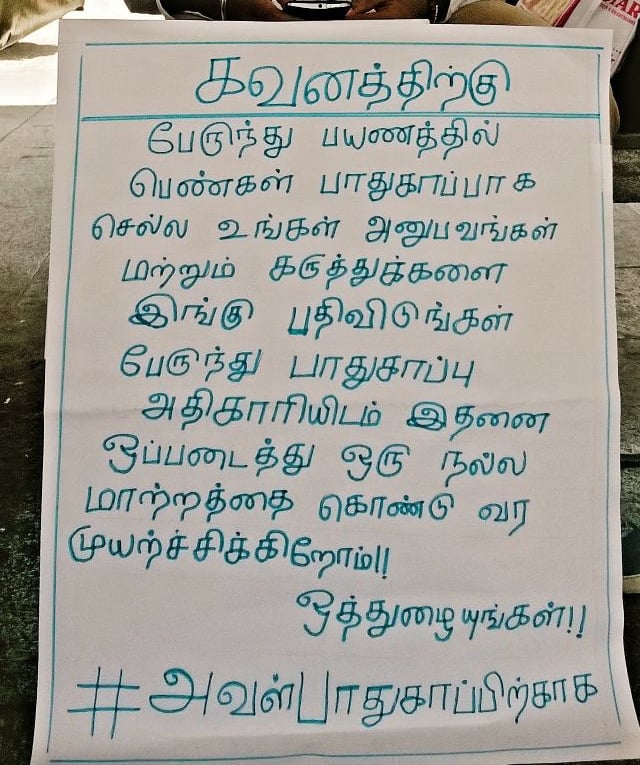 கவனத்திற்கு
பேருந்து பயணத்தில்
பெண்கள் பாதுகாப்பாக
செல்ல உங்கள் அனுபவங்கள்
மற்றும் கருத்துக்களை
இங்கு பதிவிடுங்கள்
பேருந்து பாதுகாப்பு
அதிகாரியிடம் இதனை
ஒப்படைத்து ஒரு நல்ல
மாற்றத்தை கொண்டு வர
முயற்ச்சிக்கிறோம்!!
ஒத்துழையுங்கள்!!
#அவள்பாதுகாப்பிற்காக